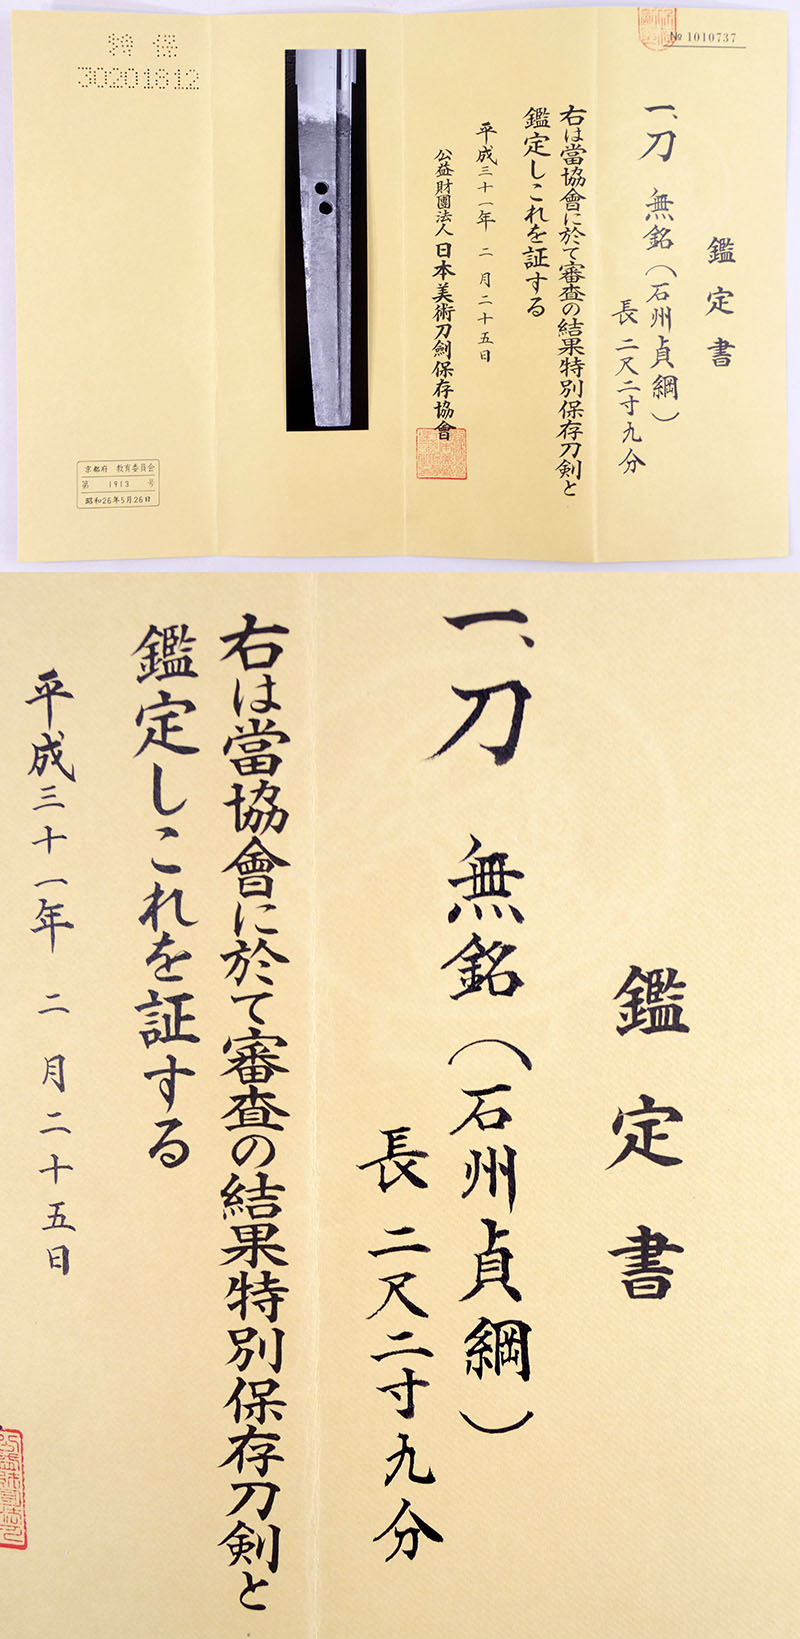 № 1010737
鑑定書
一、刀 無銘（石州貞綱）
長二尺二寸九分
右は當協會に於て審査の結果特別保存刀剣と
鑑定しこれを証する
平成三十一年 二月二十五日
公益財團法人 日本美術刀劍保存協會
特保
30201812
京都府 教育委員会
第 1913 号
昭和26年5月26日
鑑定書
一、刀 無銘（石州貞綱）
長二尺二寸九分
右は當協會に於て審査の結果特別保存刀剣と
鑑定しこれを証する
平成三十一年 二月二十五日